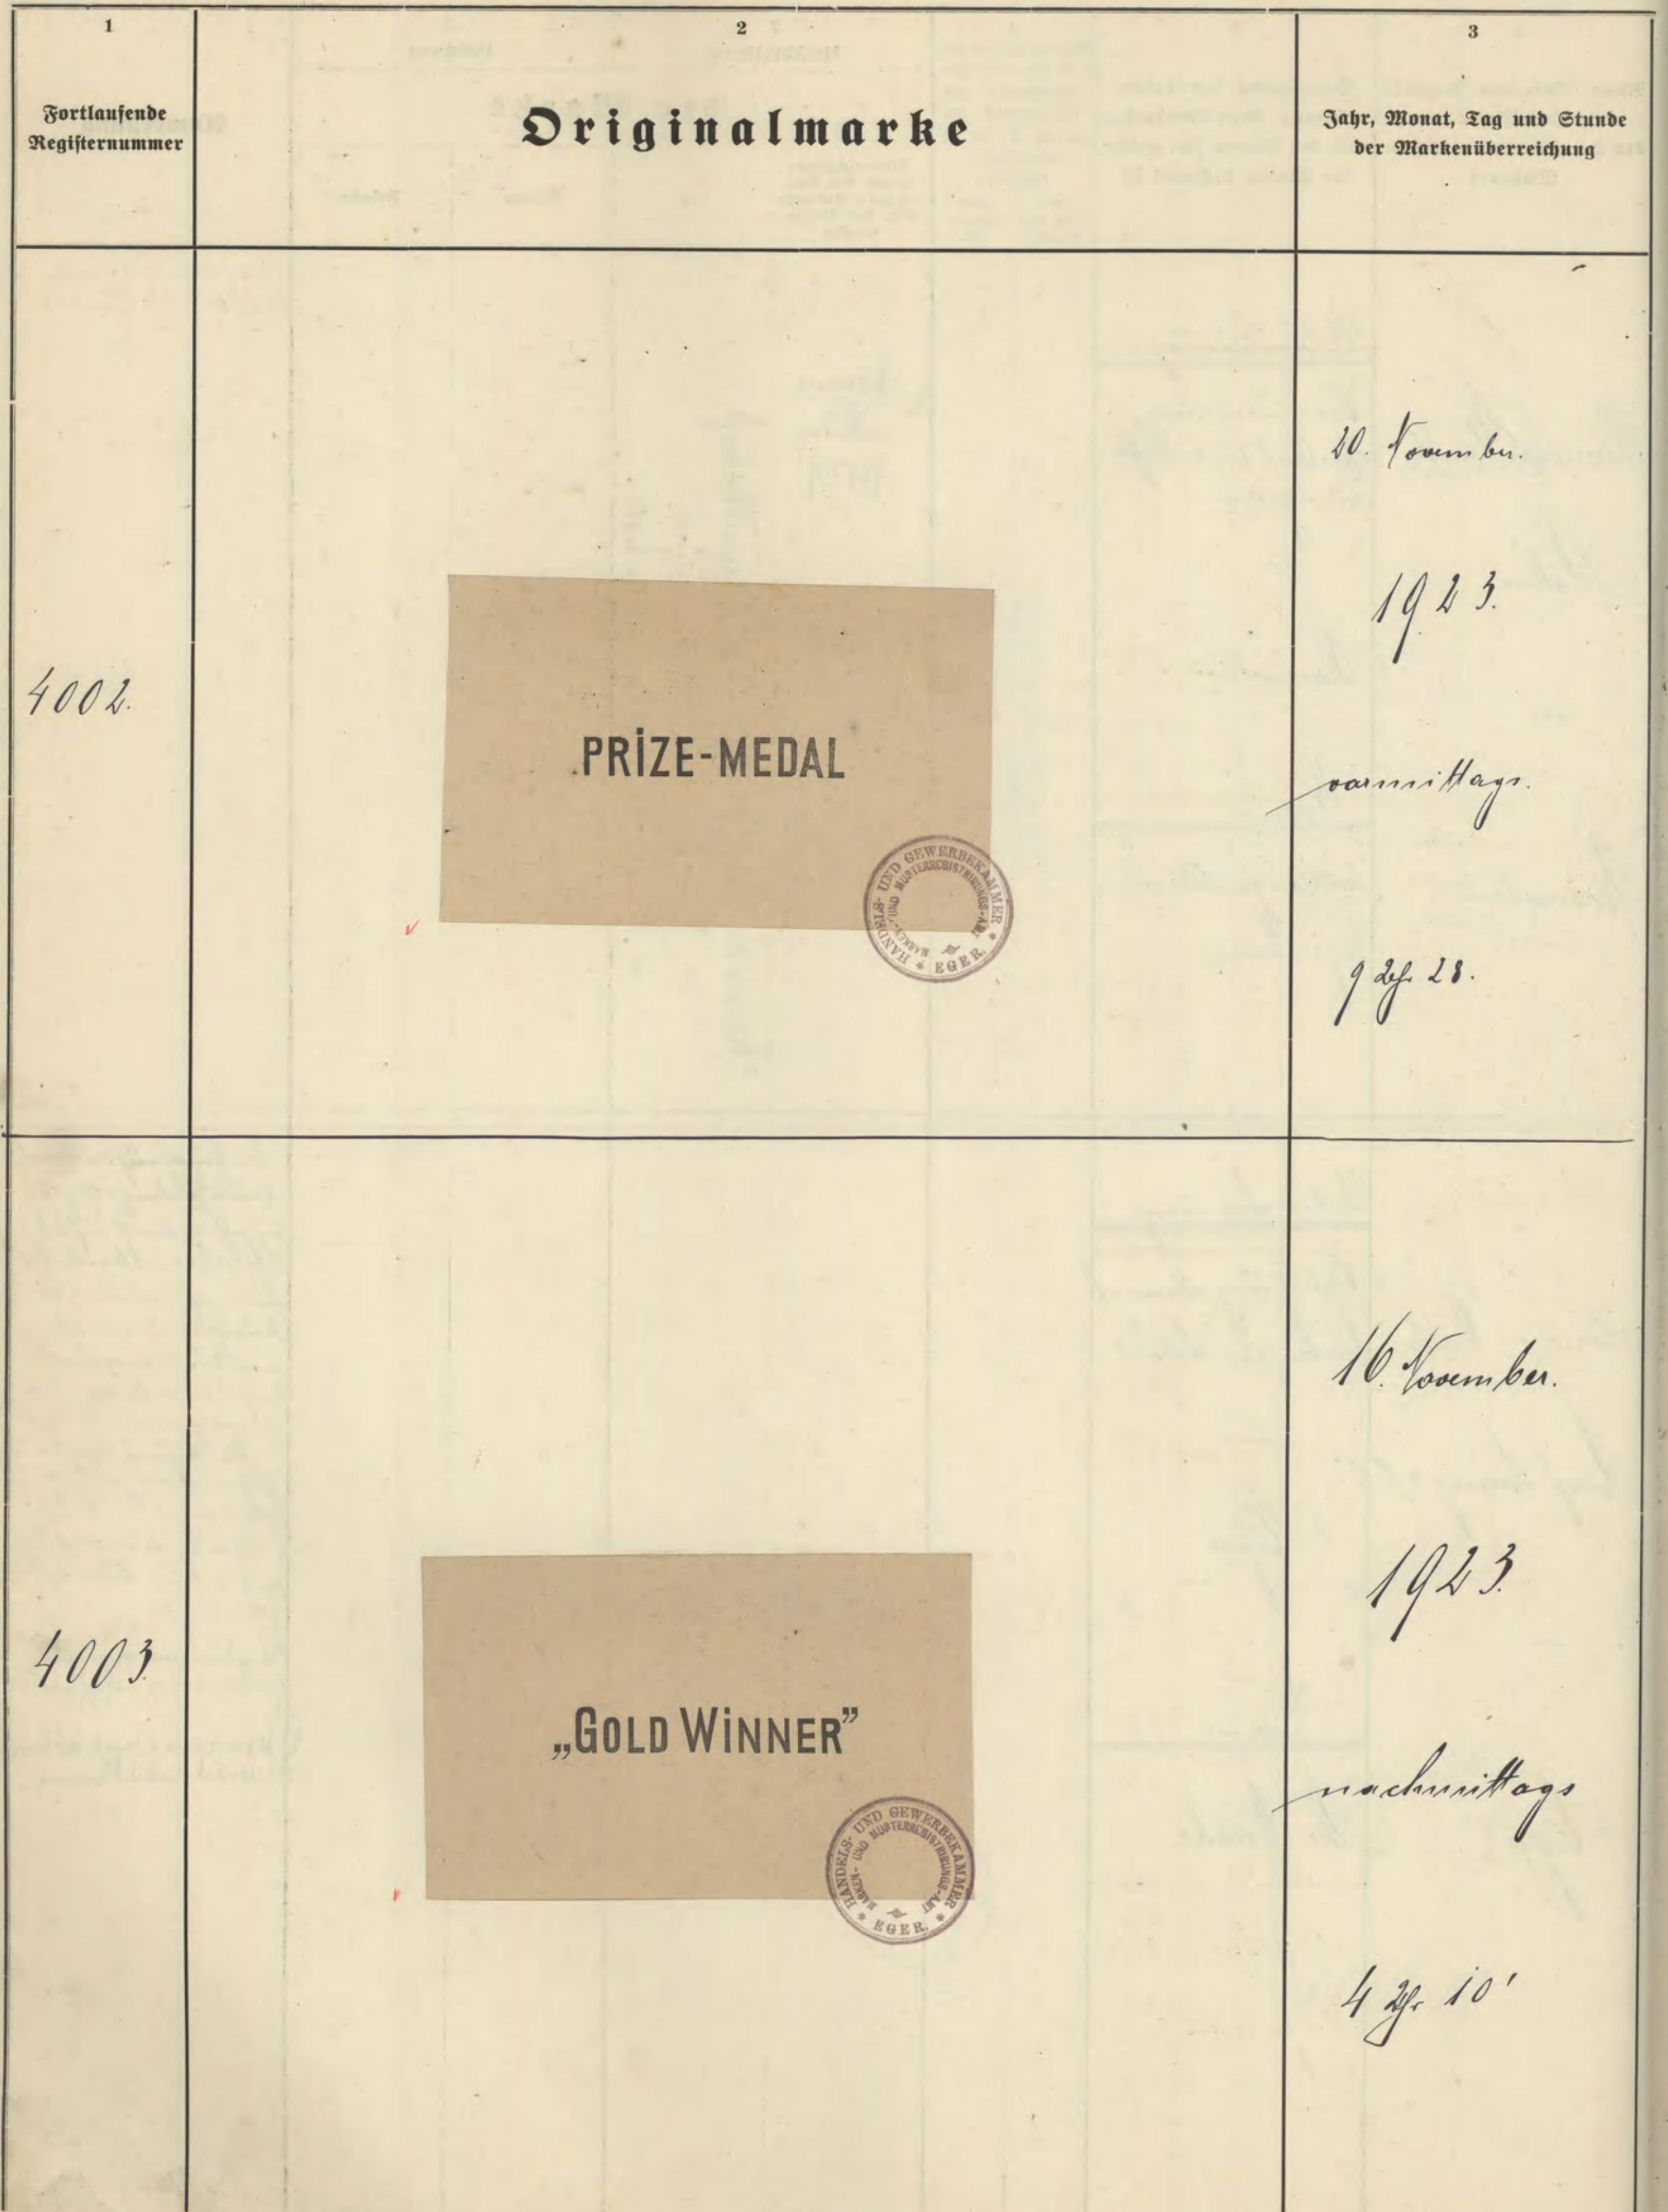 1
2
3
Fortlaufende
Registernummer
Originalmarke
Jahr, Monat, Tag und Stunde
der Markenüberreichung
4002.
PRİZE-MEDAL
HANDELS- UND GEWERBEKAMMER
MARKEN- UND MUSTERREGISTRIRUNGS-AMT
* EGER. *
20. November.
1923.
vormittags.
9 Uhr 28.
4003.
„GOLD WİNNER”
HANDELS- UND GEWERBEKAMMER
MARKEN- UND MUSTERREGISTRIRUNGS-AMT
* EGER. *
16. November.
1923.
nachmittags
4 Uhr 10'